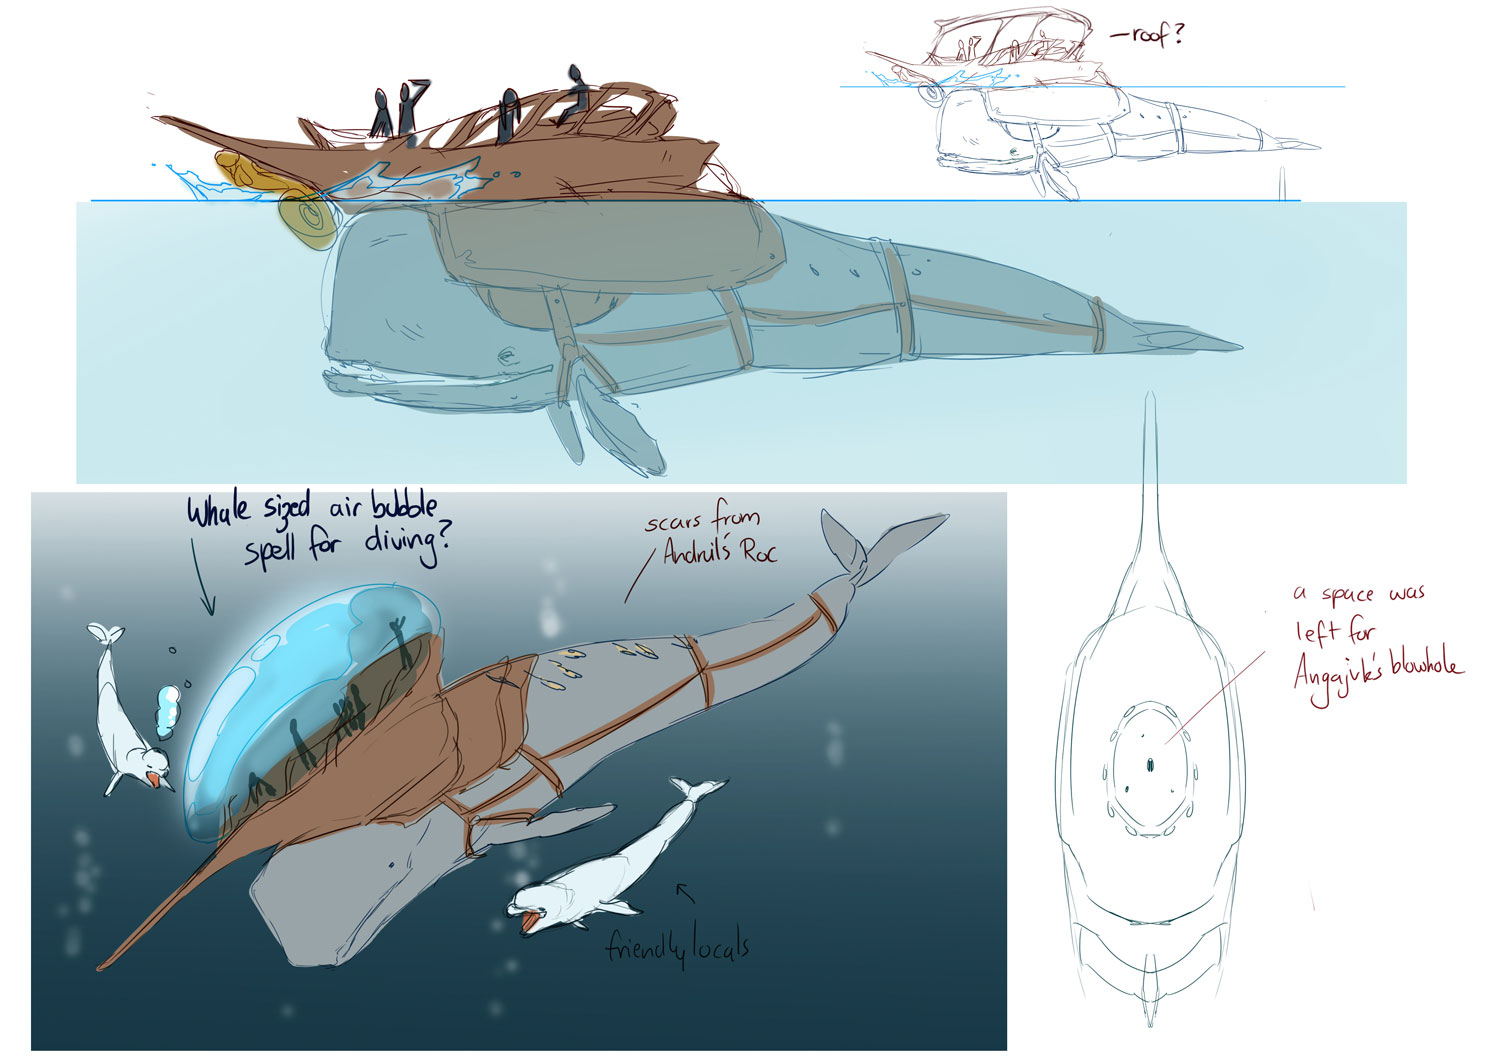 —roof?
Whale sized air bubble
spell for diving?
scars from
Andruil's Roc
a space was
left for
Angajuk's blowhole
friendly locals